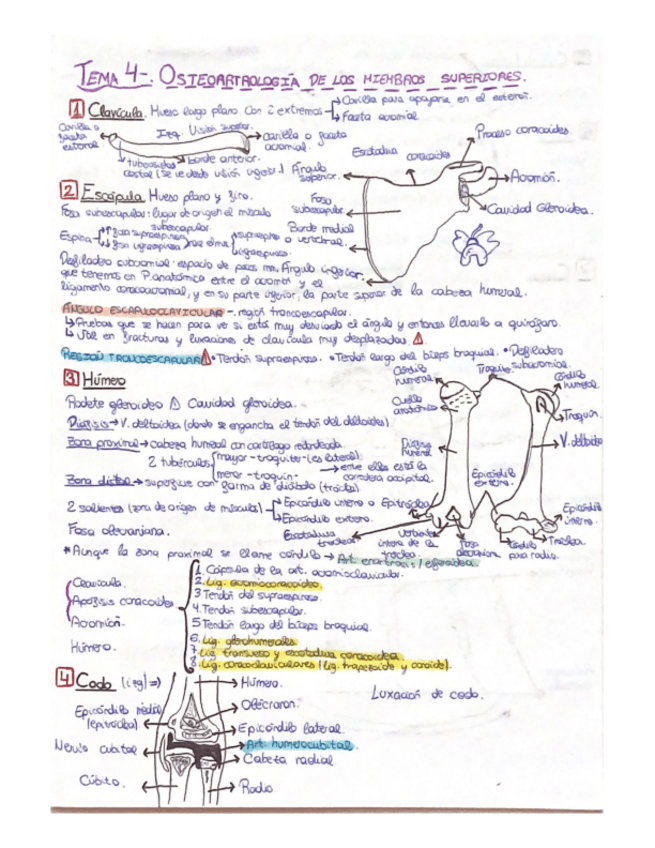 TEMA 4-. OSTEOARTROLOGÍA DE LOS MIEMBROS SUPERIORES.
1 Clavícula. Hueso largo plano con 2 extremos
Carilla para apoyarse en el esternón.
Faceta acromial
Carilla o faceta esternal
Izq. Visión superior.
carilla o faceta acromial.
borde anterior.
tuberosidad costal (se ve desde visión inferior)
Ángulo superior.
Escotadura coracoidea
Proceso coracoides.
Acromión.
Cavidad Glenoidea.
Fosa subescapular
Borde medial o vertebral.
Ángulo inferior.
2 Escápula Hueso plano y fino.
Fosa subescapular: lugar de origen el músculo subescapular.
Espina
fosa supraespinosa
fosa infraespinosa
supraespinoso
infraespinoso.
Desfiladero subacromial: espacio de pocos mm.
que tenemos en P. anatómica entre el acromion y el
ligamento coracoacromial, y en su parte inferior, la parte superior de la cabeza humeral.
ÁNGULO ESCAPULOCLAVICULAR -. región troncoescapular.
↳ Pruebas que se hacen para ver si está muy desviado el ángulo y entonces llevarlo a quirófano.
↳ Útil en fracturas y luxaciones de clavícula muy desplazadas
REGIÓN TRONCOESCAPULAR • Tendón supraespinoso. • Tendón largo del bíceps braquial. • Desfiladero subacromial.
3 Húmero
Rodete glenoideo Cavidad glenoidea.
Diáfisis → V. deltoidea (donde se engancha el tendón del deltoides).
Zona proximal → cabeza humeral con cartílago redondeada.
2 tubérculos
mayor - troquíter - (es lateral)
menor - troquín -
entre ellos está la corredera bicipital.
Zona distal → superficie con forma de diábolo (tróclea)
2 salientes (zona de origen de músculos)
Epicóndilo interno o Epitróclea
Epicóndilo externo.
Fosa olecraniana.
Cóndilo humeral.
Cuello anatómico
Diáfisis humeral
Troquíter
Cóndilo humeral.
Troquín.
V. deltoidea
Epicóndilo externo.
Epicóndilo interno.
Escotadura troclear
Vertiente interna de la tróclea.
Fosa olecraniana.
Cóndilo para radio.
Tróclea.
* Aunque la zona proximal se llame cóndilo → Art. enartrosis / esferoidea.
Clavícula.
Apófisis coracoides
Acromión.
Húmero.
1. Cápsula de la art. acromioclavicular.
2. Lig. acromiocoracoideo.
3 Tendón del supraespinoso.
4. Tendón subescapular.
5 Tendón largo del bíceps braquial.
6. Lig. glenohumerales.
7. Lig. transverso y escotadura coracoidea.
8. Lig. coracoclaviculares (lig. trapezoide y conoide).
4 Codo (izq) ⇒
Húmero.
Olécranon.
Epicóndilo lateral.
Art. humerocubital.
Cabeza radial
Radio
Epicóndilo medial (epitróclea)
Nervio cubital
Cúbito.
Luxación de codo.